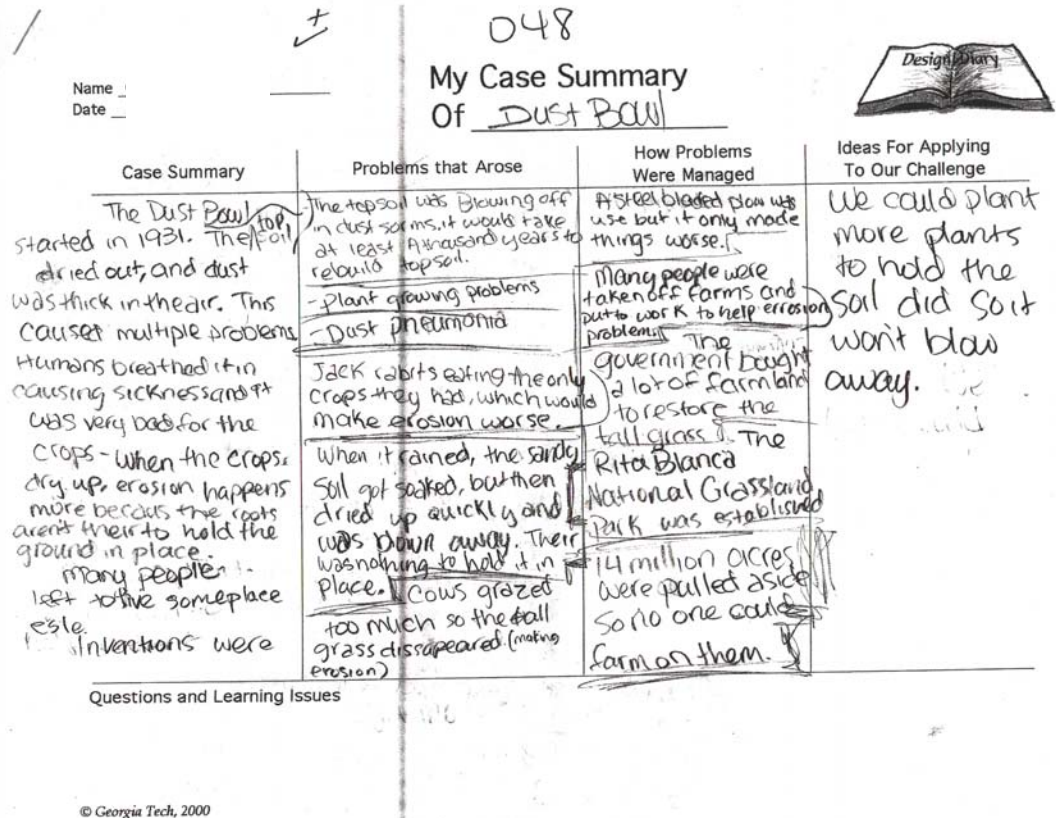 +
048
Design Diary
Name
Date
My Case Summary
Of Dust Bowl
Case Summary
The Dust Bowl
started in 1931. The top soil
dried out, and dust
was thick in the air. This
causet multiple problems
Humans breathed it in
causing sickness and it
was very bad for the
crops - when the crops
dry up, erosion happens
more becaus the roots
aren't their to hold the
ground in place.
many people
left to live someplace
esle.
Inventions were
Problems that Arose
-The topsoil was Blowing off
in dust sorms, it would take
at least A thousand years to
rebuild topsoil.
-plant growing problems
-Dust pneumonia
Jack rabits eating the only
crops they had, which would
make erosion worse.
When it rained, the sandy
soil got soaked, but then
dried up quickly and
was blown away. Their
was nothing to hold it in
place. Cows grazed
too much so the tall
grass dissapeared (making
erosion)
How Problems
Were Managed
A steel bladed plow was
use but it only made
things worse.
Many people were
taken off farms and
put to work to help errosion
problem. The
government bought
a lot of farm land
to restore the
tall grass. The
Rita Blanca
National Grassland
Park was established
14 million acres
were pulled aside
so no one could
farm on them.
Ideas For Applying
To Our Challenge
We could plant
more plants
to hold the
soil did so it
won't blow
away.
Questions and Learning Issues
© Georgia Tech, 2000